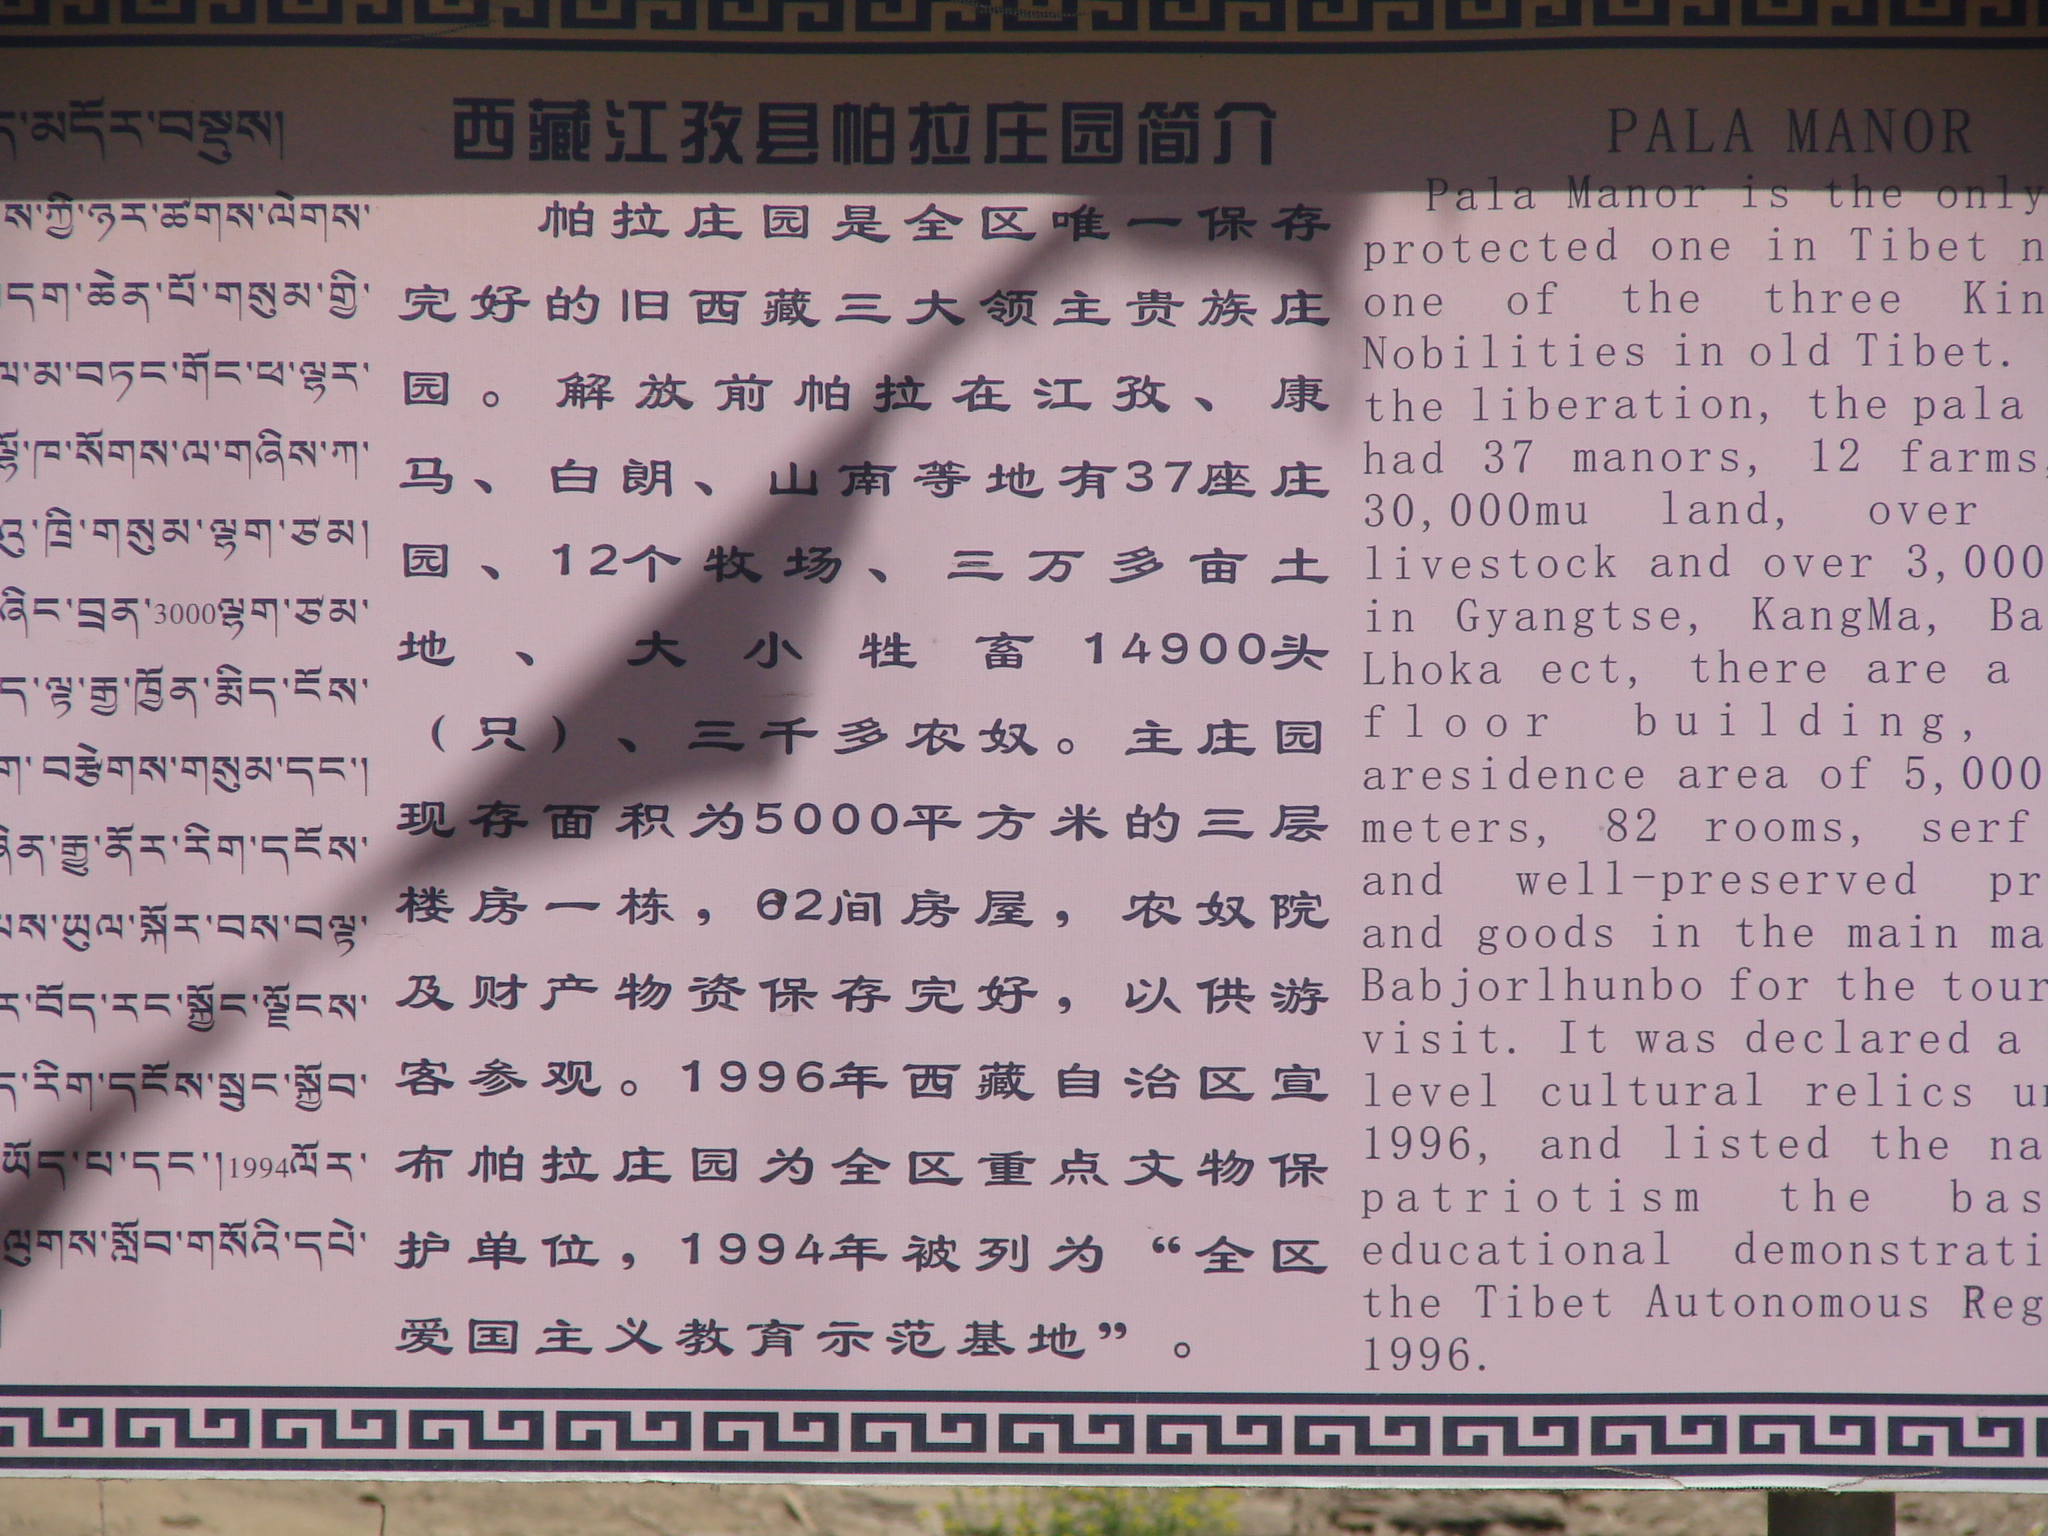 མདོར་བསྡུས།
ས་ཀྱི་ཉར་ཚགས་ལེགས་
དག་ཆེན་པོ་གསུམ་གྱི་
མ་བཏང་གོང་ཕ་ལྷར་
ཁ་སོགས་ལ་གཞིས་ཀ་
ཁྲི་གསུམ་ལྷག་ཙམ།
ཞིང་བྲན་3000ལྷག་ཙམ་
ད་ལྟ་རྒྱ་ཁྱོན་སྨིད་ངོས་
བརྩེགས་གསུམ་དང་།
རྒྱུ་ནོར་རིག་དངོས་
ཡུལ་སྐོར་བས་བལྟ་
བོད་རང་སྐྱོང་ལྗོངས་
རིག་དངོས་སྲུང་སྐྱོབ་
ཡོད་པ་དང་།1994ལོར་
ལུགས་སློབ་གསོའི་དཔེ་
西藏江孜县帕拉庄园简介
帕拉庄园是全区唯一保存
完好的旧西藏三大领主贵族庄
园。解放前帕拉在江孜、康
马、白朗、山南等地有37座庄
园、12个牧场、三万多亩土
地、大小牲畜14900头
（只）、三千多农奴。主庄园
现存面积为5000平方米的三层
楼房一栋，62间房屋，农奴院
及财产物资保存完好，以供游
客参观。1996年西藏自治区宣
布帕拉庄园为全区重点文物保
护单位，1994年被列为“全区
爱国主义教育示范基地”。
PALA MANOR
Pala Manor is the only
protected one in Tibet n
one of the three Kin
Nobilities in old Tibet.
the liberation, the pala
had 37 manors, 12 farms,
30,000mu land, over
livestock and over 3,000
in Gyangtse, KangMa, Ba
Lhoka ect, there are a
floor building,
aresidence area of 5,000
meters, 82 rooms, serf
and well-preserved pr
and goods in the main ma
Babjorlhunbo for the tour
visit. It was declared a
level cultural relics un
1996, and listed the na
patriotism the bas
educational demonstrati
the Tibet Autonomous Reg
1996.